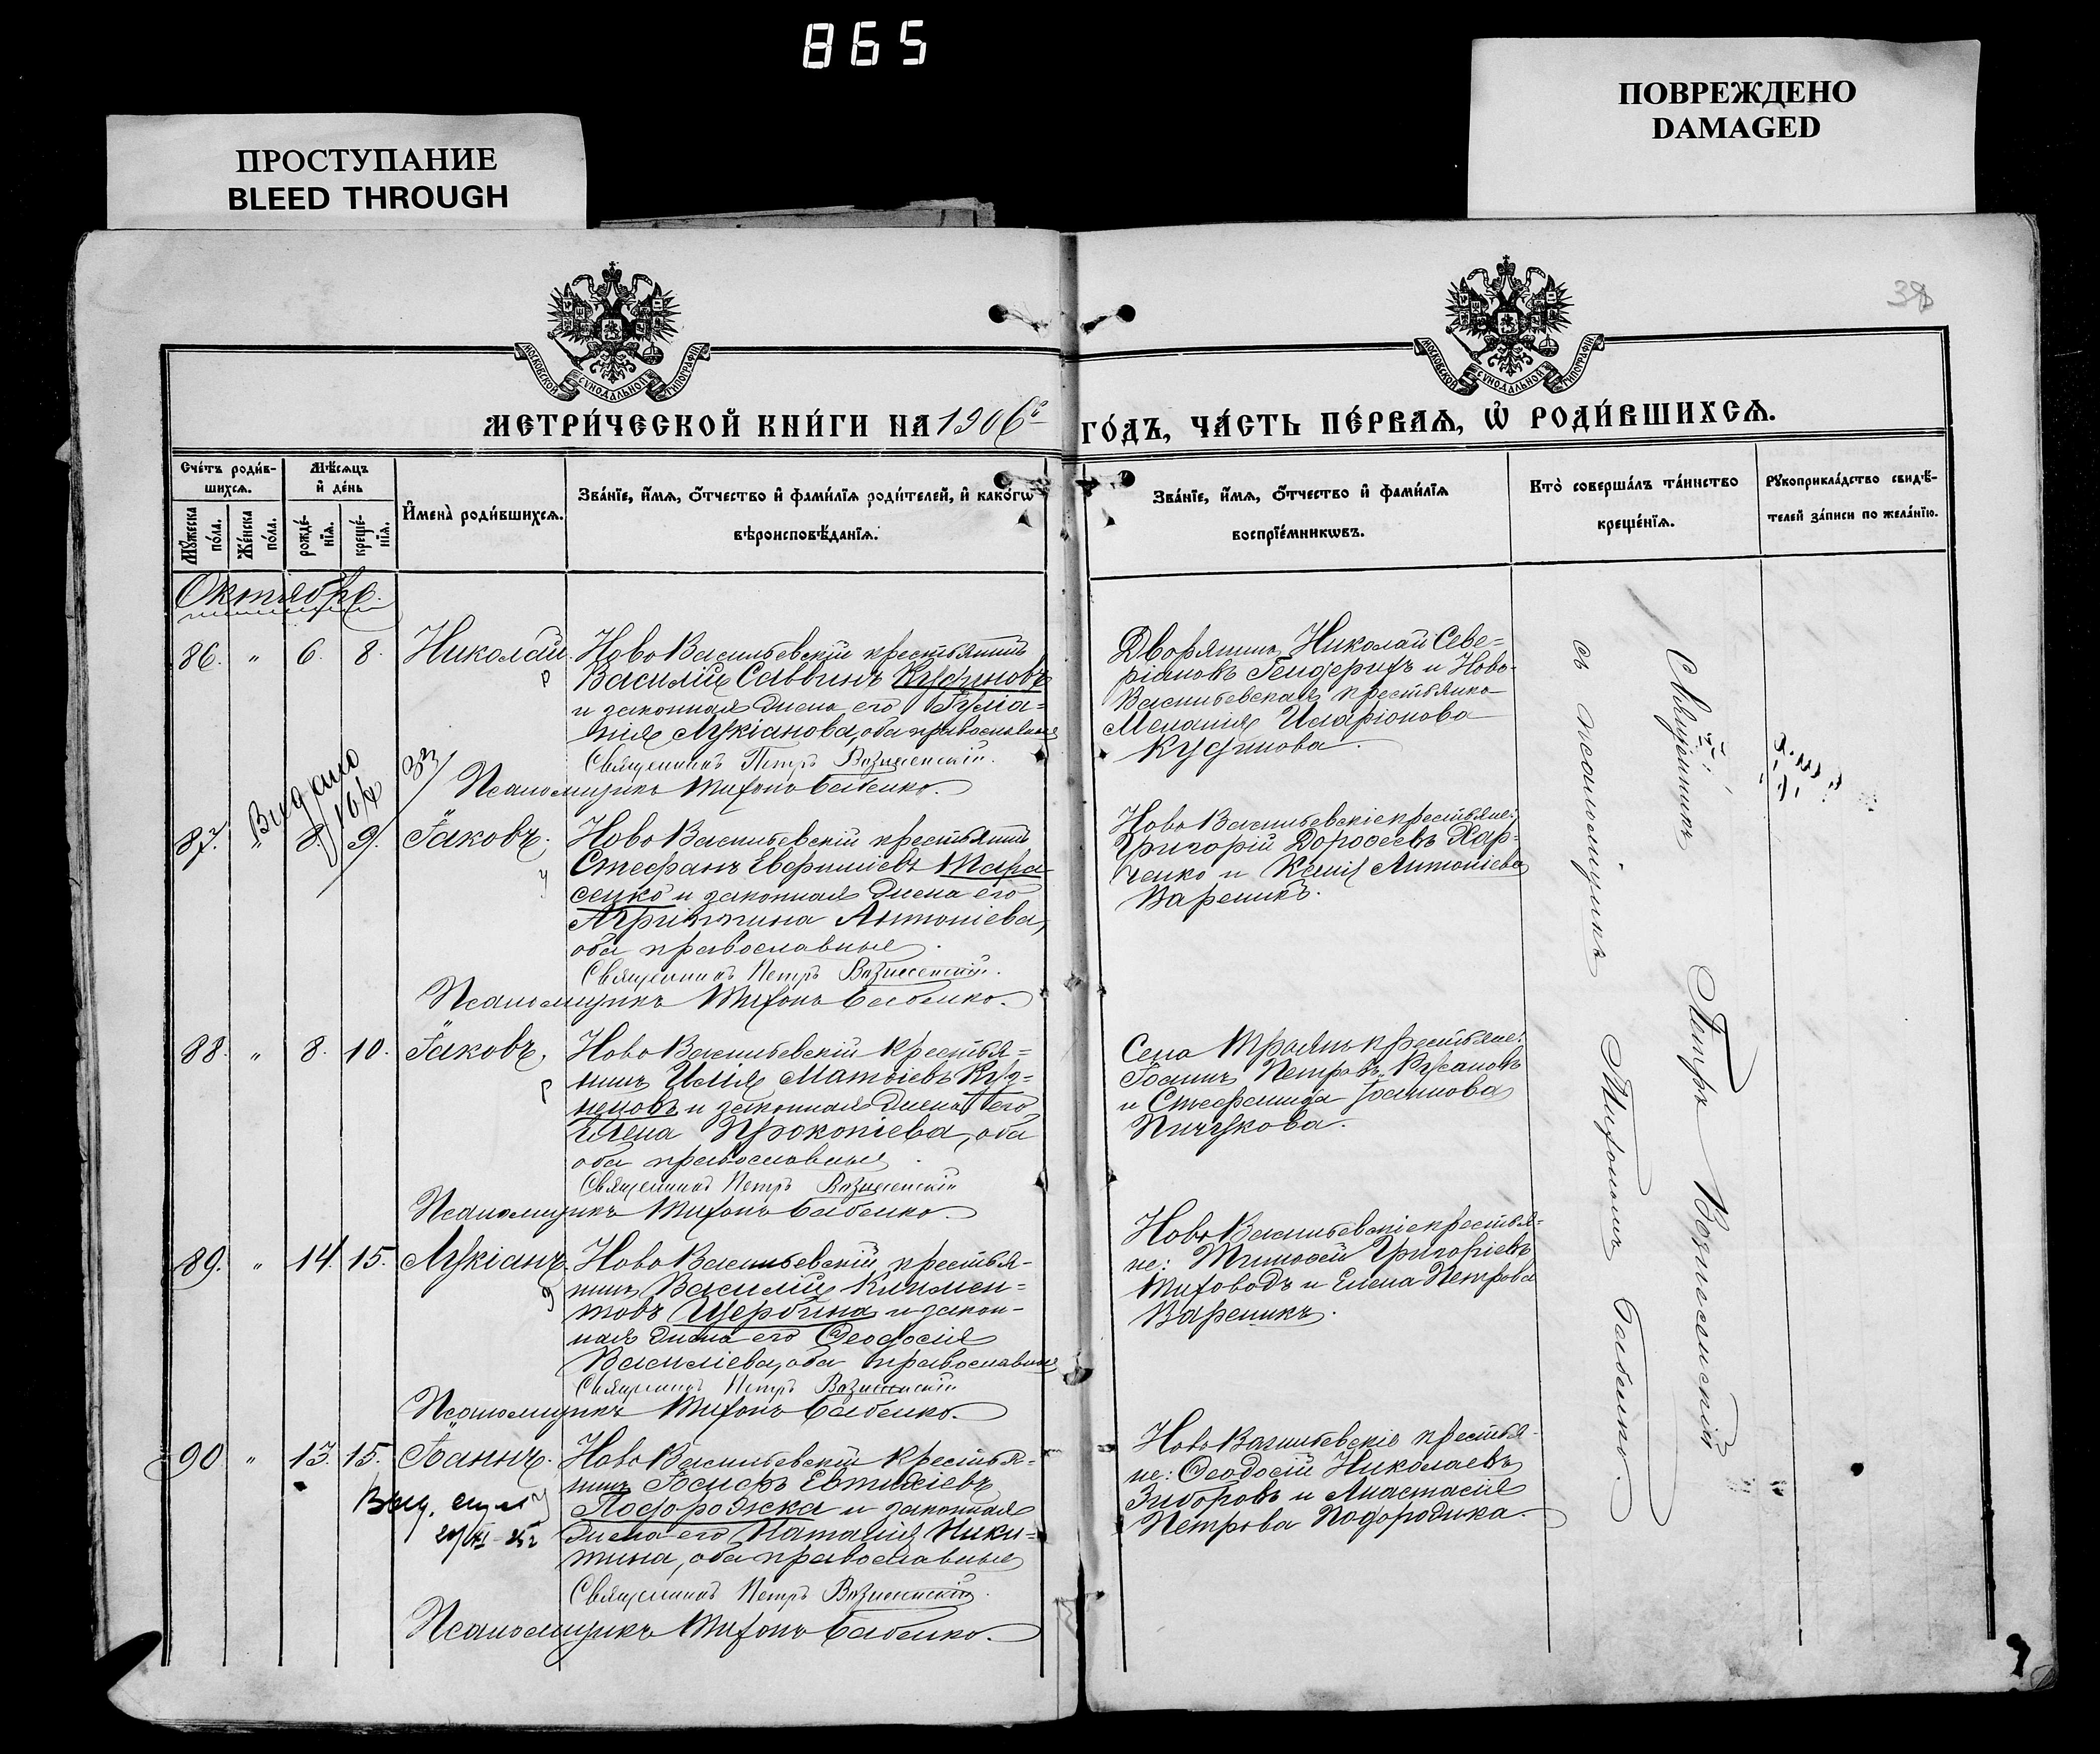 865
ПРОСТУПАНИЕ
BLEED THROUGH
ПОВРЕЖДЕНО
DAMAGED
38
МОСКОВСКОЙ СѴНОДАЛЬНОЙ ТИПОГРАФІИ
МОСКОВСКОЙ СѴНОДАЛЬНОЙ ТИПОГРАФІИ
МЕТРИ́ЧЕСКОЙ КНИ́ГИ НА 1906й
ГО́ДЪ, ЧА́СТЬ ПЕ́РВАѦ, Ѡ҆ РОДИ́ВШИХСѦ.
Сче́тъ роди́в-
шихсѧ.
Мꙋ́жеска по́ла.
Же́нска по́ла.
Мѣ́сѧцъ
и҆ де́нь
рожде́-
нїѧ.
креще́-
нїѧ.
И҆мена̀ роди́вшихсѧ.
Зва́нїе, и҆́мѧ, ѻ҆́тчество и҆ фами́лїѧ роди́телей, и҆ како́гѡ
вѣроисповѣ́данїѧ.
Зва́нїе, и҆́мѧ, ѻ҆́тчество и҆ фами́лїѧ
воспрїе́мникѡвъ.
Кто̀ соверша́лъ та́инство
креще́нїѧ.
Рꙋкоприкла́дство свидѣ́-
телей за́писи по жела́нїю.
Октябрь.
86. " 6. 8. Николай.
НовоВасильевскій крестьянинъ
Василій Саввинъ Кудриновъ
и законная жена его
Лукіанова, оба православные
Священникъ Петръ Вознесенскій.
Псаломщикъ Тихонъ Бабенко.
Дворянинъ Николай Севе-
ріановъ Гендерихъ и Ново-
Васильевская крестьянка
Меланія Иларіонова
Выдано
16/X
33
87. " 8. 9. Іаковъ.
НовоВасильевскій крестьянинъ
Стефанъ Евфиміевъ Тара-
сенко и законная жена его
Агриппина Антоніева,
оба православные.
Священникъ Петръ Вознесенскій.
Псаломщикъ Тихонъ Бабенко.
НовоВасильевскіе крестьяне:
Григорій Дороѳеевъ Хар-
ченко и Ксенія Антоніева
Вареникъ.
88. " 8. 10. Іаковъ.
НовоВасильевскій крестья-
нинъ Илія Матѳіевъ Куз-
нецовъ и законная жена его
Елена Прокопіева, оба
оба православные.
Священникъ Петръ Вознесенскій
Псаломщикъ Тихонъ Бабенко.
Села Трояны крестьяне:
Іоаннъ Петровъ Русановъ
и Стефанида Іоаннова
Пичукова.
89. " 14. 15. Лукіанъ.
НовоВасильевскій крестья-
нинъ Василій Климен-
товъ Щербина и закон-
ная жена его Ѳеодосія
Василіева, оба православные
Священникъ Петръ Вознесенскій
Псаломщикъ Тихонъ Бабенко.
НовоВасильевскіе крестья-
не: Тимоѳей Григоріевъ
Тиховодъ и Елена Петрова
Вареникъ.
90. " 13. 15. Іоаннъ.
НовоВасильевскій крестья-
нинъ Іосифъ Евтихіевъ
Подорожка и законная
жена его Наталія Ники-
тина, оба православные
Священникъ Петръ Вознесенскій.
Псаломщикъ Тихонъ Бабенко.
НовоВасильевскіе крестья-
не: Ѳеодосій Николаевъ
Зиборовъ и Анастасія
Петрова Подорожка.
Священникъ Петръ Вознесенскій
съ псаломщикомъ Тихономъ Бабенко.